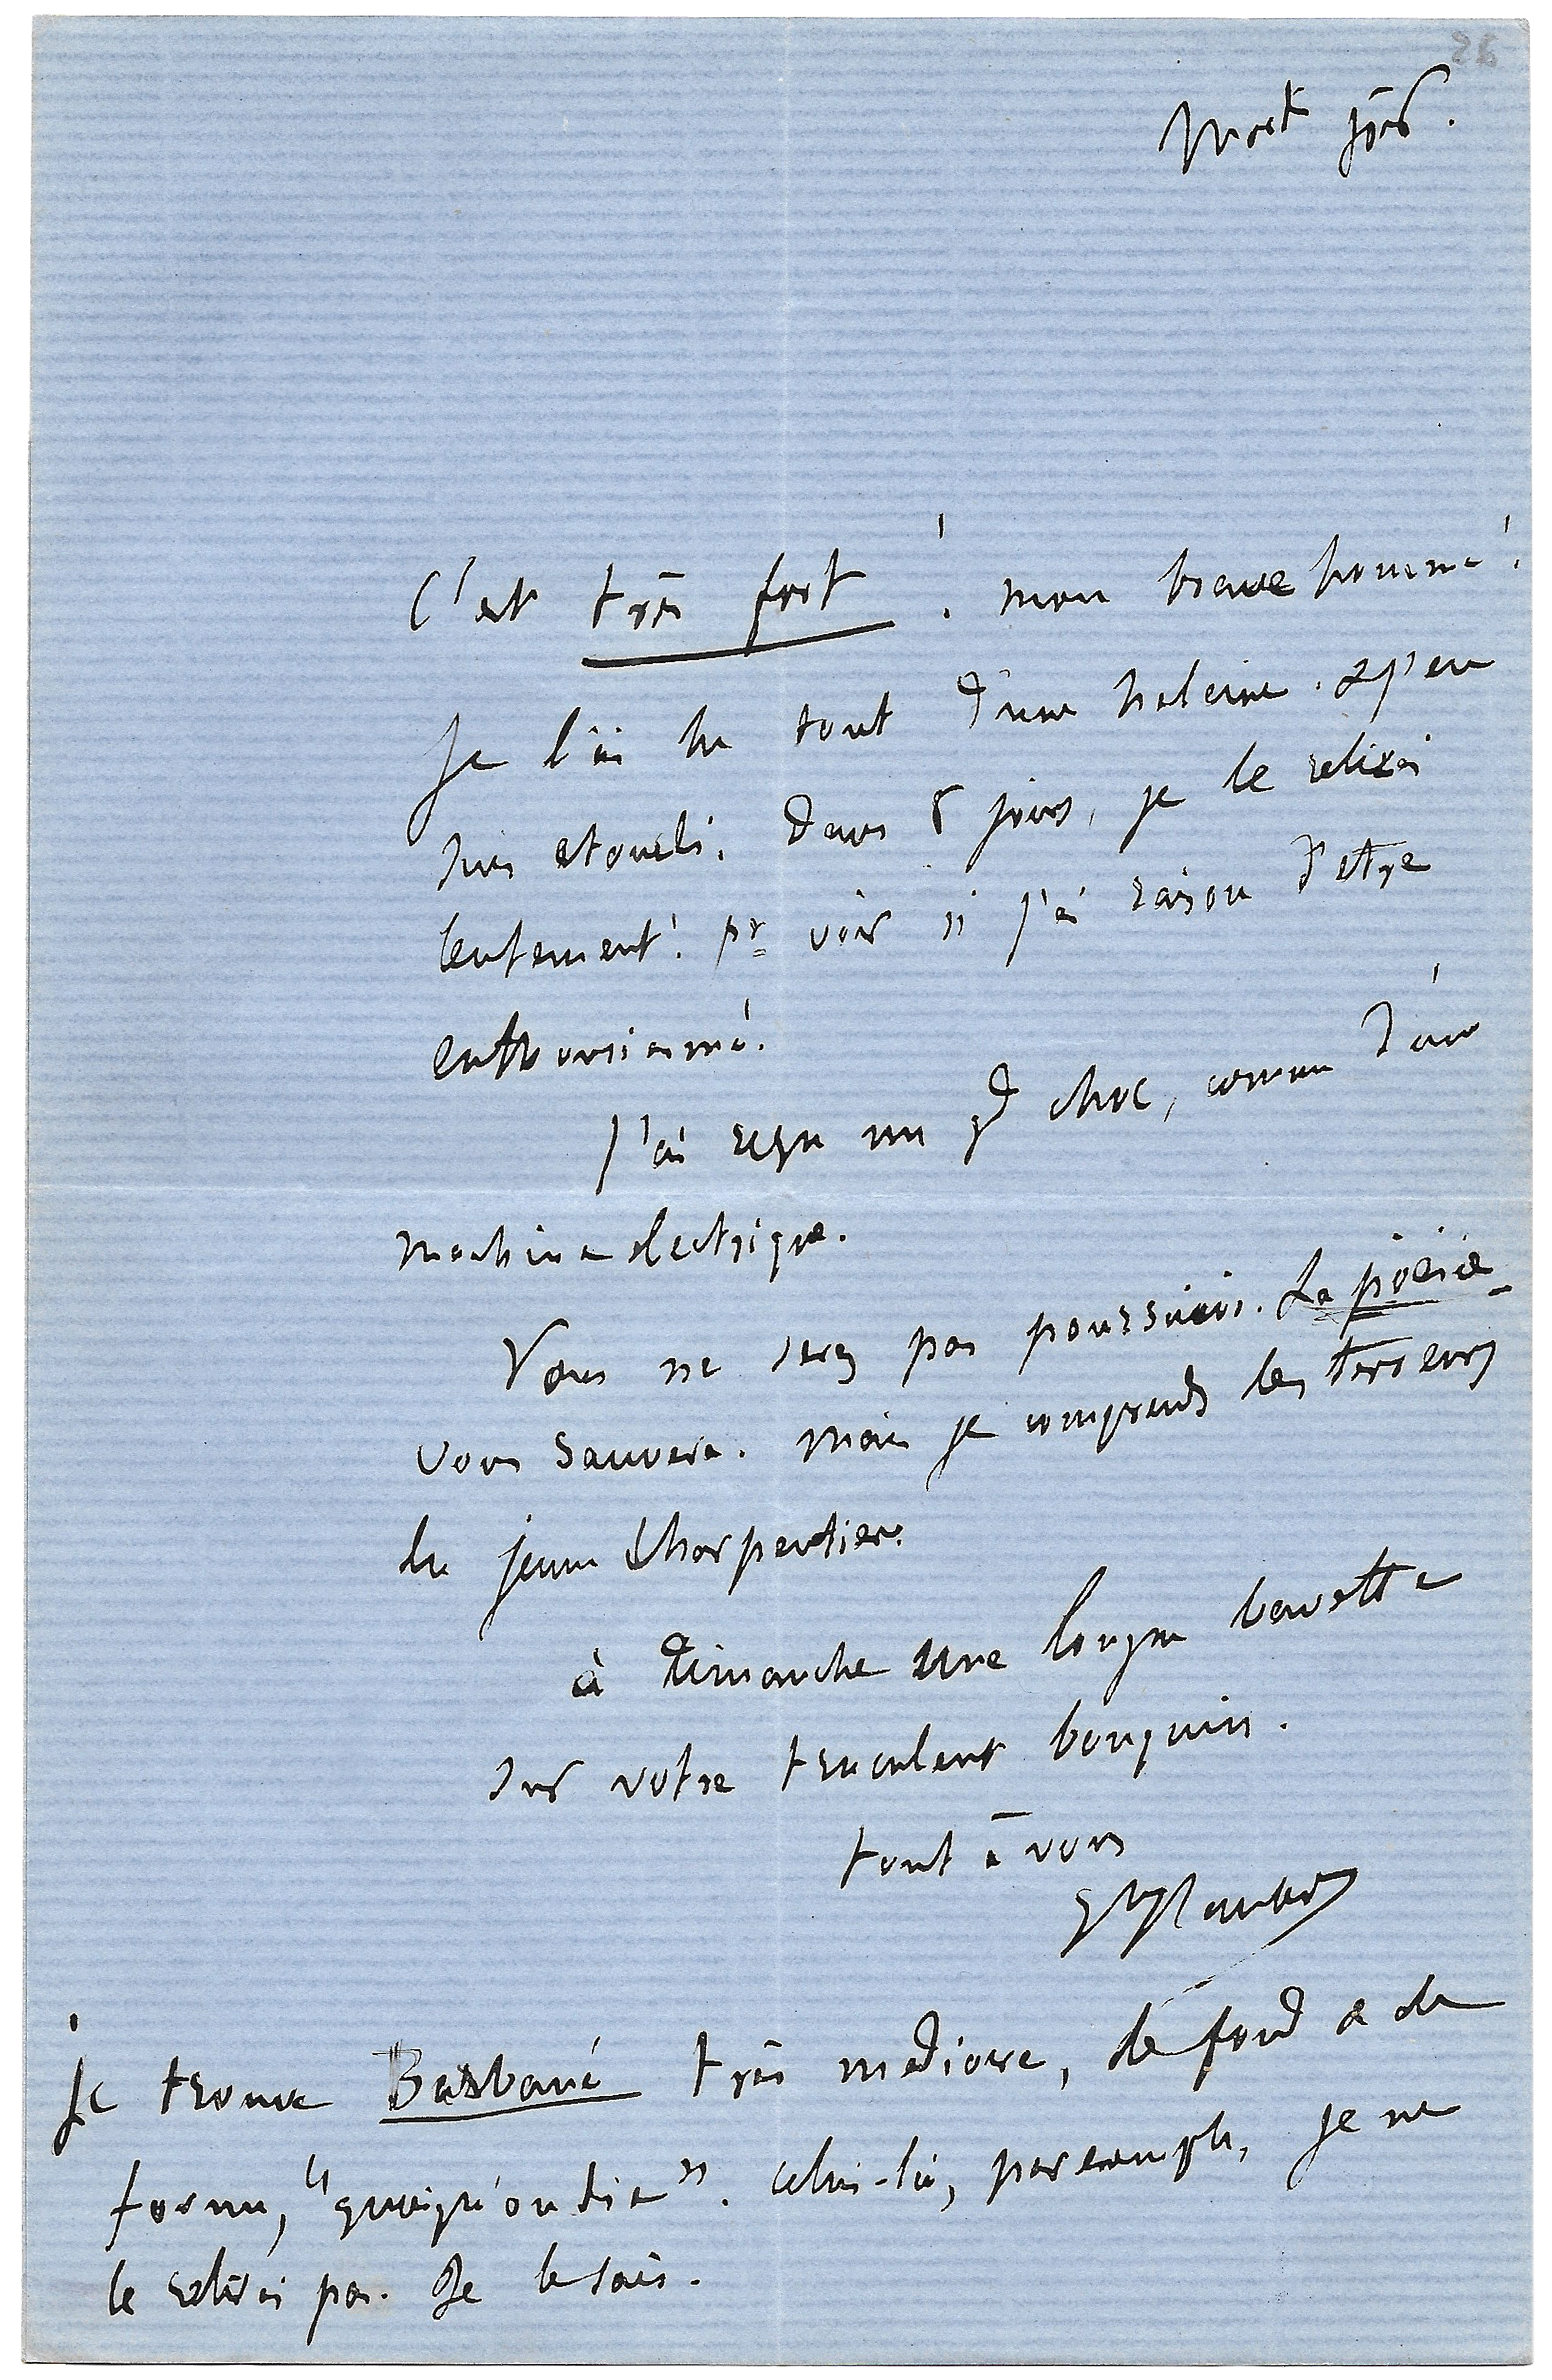 C'est très fort ! mon brave homme !
Je l'ai lu tout d'une haleine. & j'en
suis etourdi. Dans 8 jours, je le relirai
lentement ! pr voir si j'ai raison d'etre
enthousiasmé.
J'ai reçu un gd choc, comme d'une
machine electrique.
Vous ne serez pas poursuivi. La poésie
vous sauvera. Mais je comprends les terreurs
du jeune Charpentier.
à Dimanche une longue bavette
sur votre truculent bouquin.
tout à vous
Gve Flaubert
Je trouve très mediocre, de fond & de
forme, "quoiqu'on die". Celui-là, par exemple, je ne
le relirai pas. Je le sais.